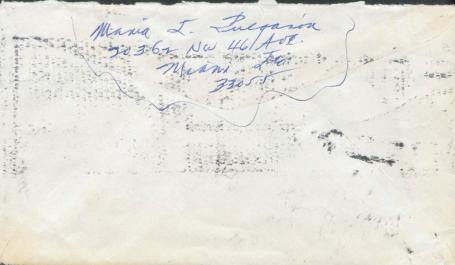 Maria I. Pulgaron
20362 NW 46 Ave.
Miami Fla.
33055